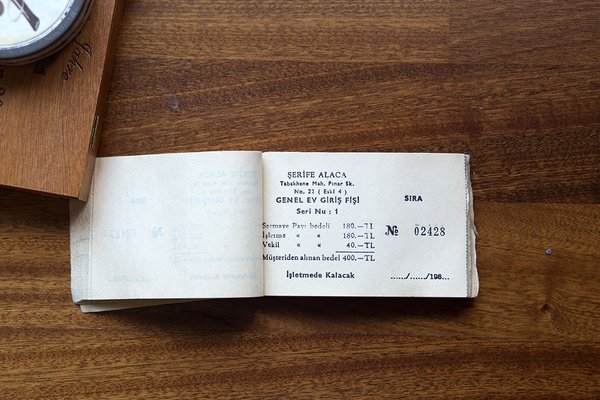 ŞERİFE ALACA
Tabakhane Mah. Pınar Sk.
No. 22 ( Eski 4 )
GENEL EV GİRİŞ FİŞİ
SIRA
Seri Nu : 1
Sermaye Payı bedeli 180.—TL
İşletme « « 180.—TL
№ 02428
Vekil « 40.—TL
Müşteriden alınan bedel 400.—TL
İşletmede Kalacak
....../....../198...